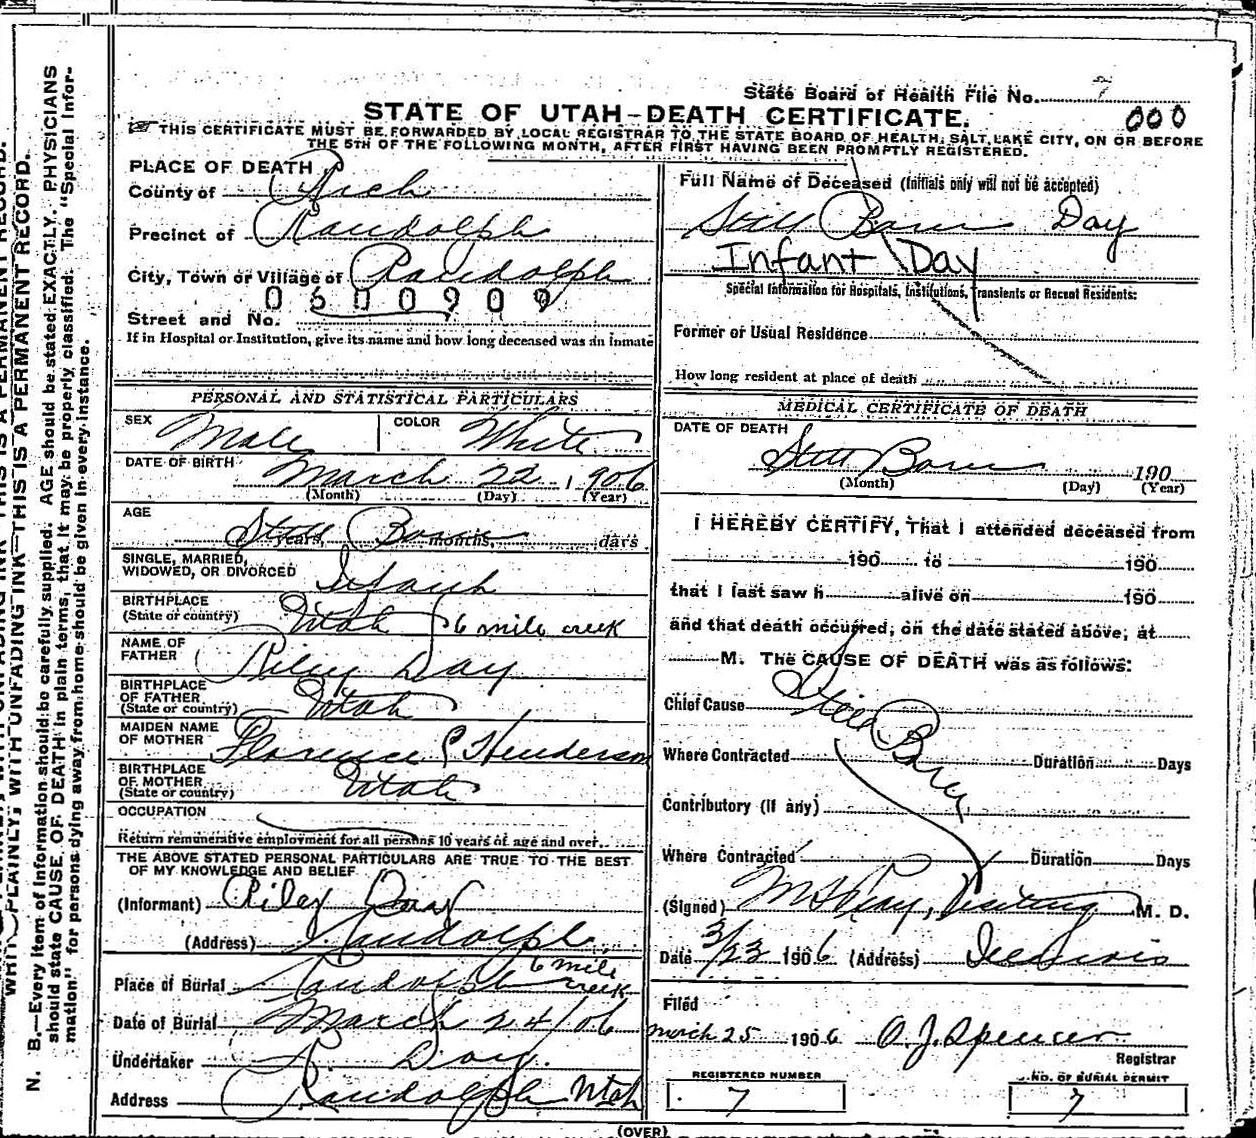 State Board of Health File No. 7
STATE OF UTAH-DEATH CERTIFICATE.
000
THIS CERTIFICATE MUST BE FORWARDED BY LOCAL REGISTRAR TO THE STATE BOARD OF HEALTH, SALT LAKE CITY, ON OR BEFORE
THE 5TH OF THE FOLLOWING MONTH, AFTER FIRST HAVING BEEN PROMPTLY REGISTERED.
PLACE OF DEATH
County of Rich
Precinct of Randolph
City, Town or Village of Randolph
0600909
Street and No.
If in Hospital or Institution, give its name and how long deceased was an inmate
PERSONAL AND STATISTICAL PARTICULARS
SEX Male COLOR White
DATE OF BIRTH March 22, 1906
(Month) (Day) (Year)
AGE Still Born years, months, days
SINGLE, MARRIED,
WIDOWED, OR DIVORCED Infant
BIRTHPLACE
(State or country) Utah 6 mile creek
NAME OF
FATHER Riley Day
BIRTHPLACE
OF FATHER
(State or country) Utah
MAIDEN NAME
OF MOTHER Florence Henderson
BIRTHPLACE
OF MOTHER
(State or country) Utah
OCCUPATION
Return remunerative employment for all persons 10 years of age and over.
THE ABOVE STATED PERSONAL PARTICULARS ARE TRUE TO THE BEST
OF MY KNOWLEDGE AND BELIEF
(Informant) Riley Day
(Address) Randolph
Place of Burial Randolph 6 mile creek
Date of Burial March 24/06
Undertaker R. Day.
Address Randolph Utah
Full Name of Deceased (Initials only will not be accepted)
Still Born Day
Infant Day
Special Information for Hospitals, Institutions, Transients or Recent Residents:
Former or Usual Residence
How long resident at place of death
MEDICAL CERTIFICATE OF DEATH
DATE OF DEATH
Still Born 190
(Month) (Day) (Year)
I HEREBY CERTIFY, That I attended deceased from
190 to 190
that I last saw h alive on 190
and that death occurred, on the date stated above, at
M. The CAUSE OF DEATH was as follows:
Chief Cause Still Born
Where Contracted Duration Days
Contributory (if any)
Where Contracted Duration Days
(Signed) Visiting M. D.
Date 3/23 1906 (Address)
Filed
March 25 1906 O. J. Spencer
Registrar
REGISTERED NUMBER
7
NO. OF BURIAL PERMIT
7
(OVER)
PLAINLY, WITH UNFADING INK—THIS IS A PERMANENT RECORD.
N. B.—Every item of information should be carefully supplied. AGE should be stated EXACTLY. PHYSICIANS
should state CAUSE OF DEATH in plain terms, that it may be properly classified. The "Special Infor-
mation" for persons dying away from home should be given in every instance.